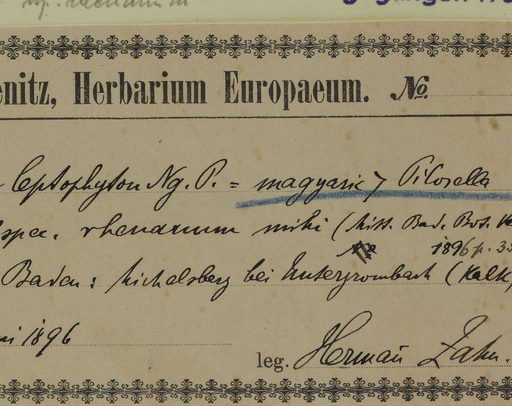 sp. rhenanum
enitz, Herbarium Europaeum. No.
Leptophyton Ng. P. = magyaric > Pilosella
spec. rhenanum mihi (Mitt. Bad. Bot. Ve
1896 p. 35
Baden: Michelsberg bei Untergrombach (Kalk)
ni 1896
leg. Herman Zahn.